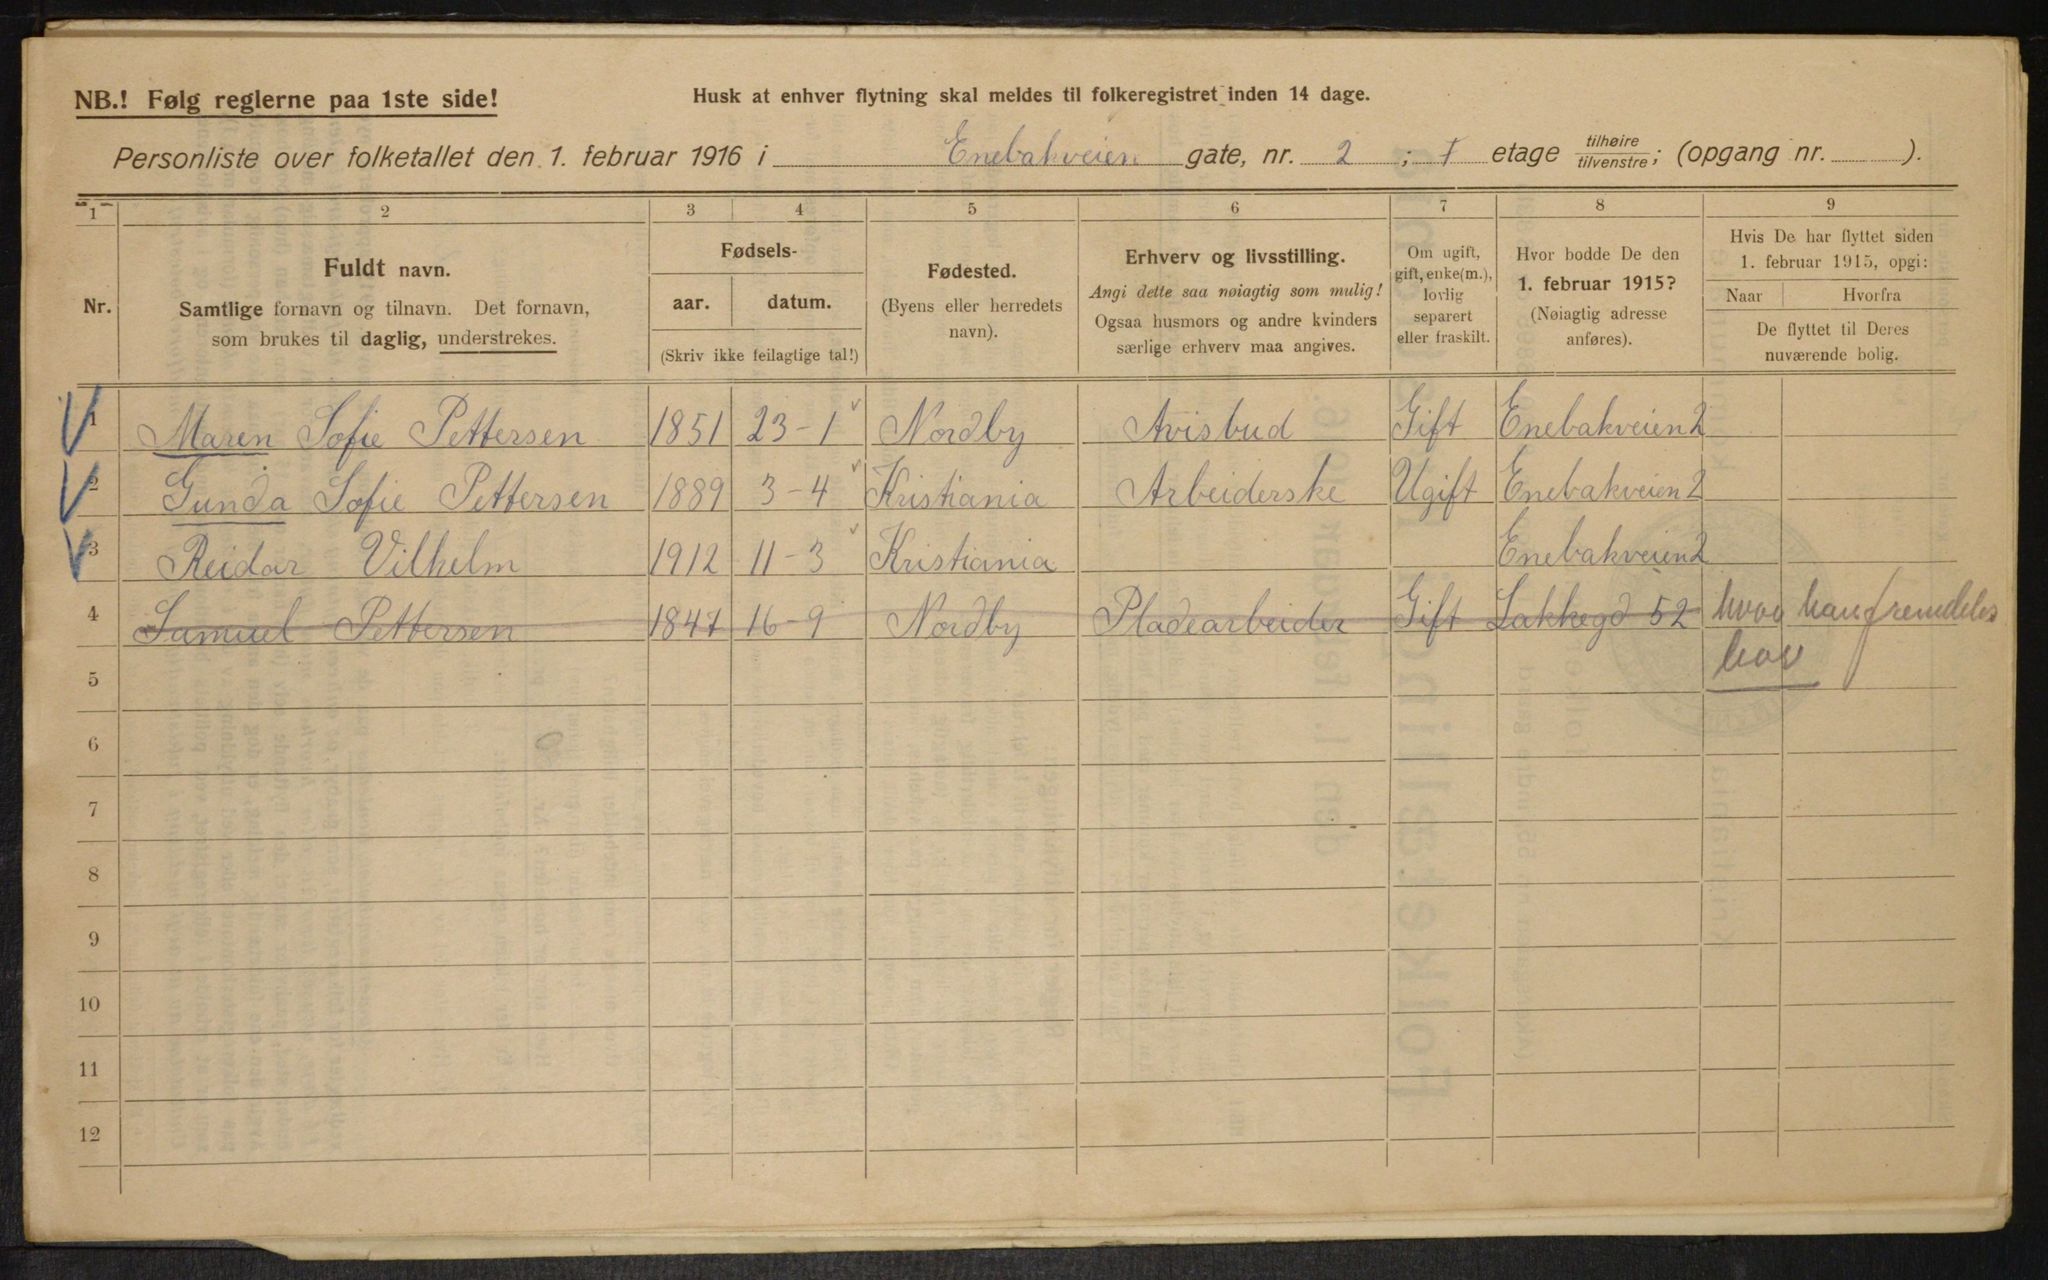 NB.! Følg reglerne paa 1ste side!
Husk at enhver flytning skal meldes til folkeregistret inden 14 dage.
Personliste over folketallet den 1. februar 1916 i Enebakveien gate, nr. 2 ; 1 etage tilhøire tilvenstre ; (opgang nr. ).
1 2 3 4 5 6 7 8 9
Nr.
Fuldt navn.
Samtlige fornavn og tilnavn. Det fornavn,
som brukes til daglig, understrekes.
Fødsels-
aar. datum.
(Skriv ikke feilagtige tal!)
Fødested.
(Byens eller herredets
navn).
Erhverv og livsstilling.
Angi dette saa nøiagtig som mulig!
Ogsaa husmors og andre kvinders
særlige erhverv maa angives.
Om ugift,
gift, enke(m.),
lovlig
separert
eller fraskilt.
Hvor bodde De den
1. februar 1915?
(Nøiagtig adresse
anføres).
Hvis De har flyttet siden
1. februar 1915, opgi:
Naar Hvorfra
De flyttet til Deres
nuværende bolig.
1 Maren Sofie Pettersen 1851 23-1 Nordby Avisbud Gift Enebakveien 2
2 Gunda Sofie Pettersen 1889 3-4 Kristiania Arbeiderske Ugift Enebakveien 2
3 Reidar Vilhelm 1912 11-3 Kristiania Enebakveien 2
4 Samuel Pettersen 1847 16-9 Nordby Pladearbeider Gift Lakkegd 52 hvor han fremdeles
bor
5
6
7
8
9
10
11
12